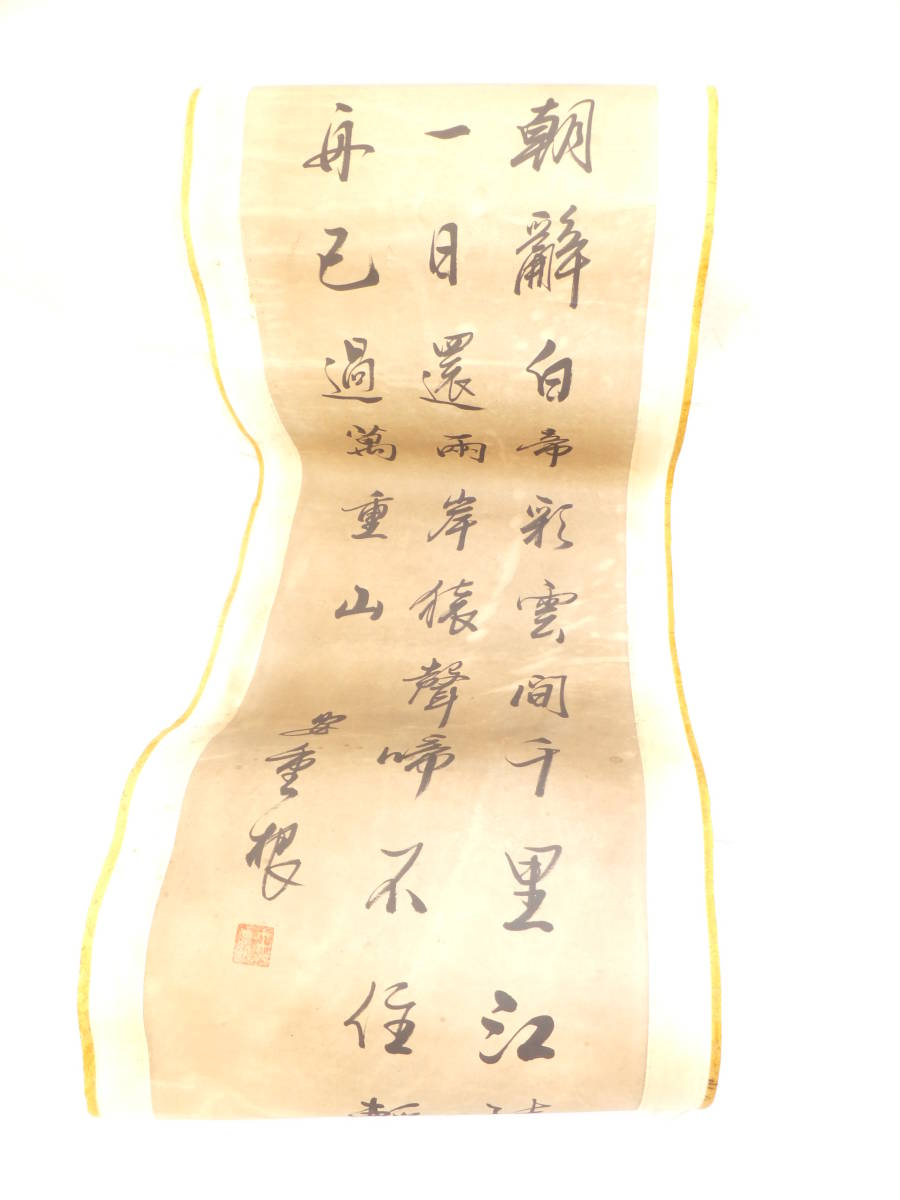 朝辭白帝彩雲間千里江
一日還兩岸猿聲啼不住
舟已過萬重山
安重根